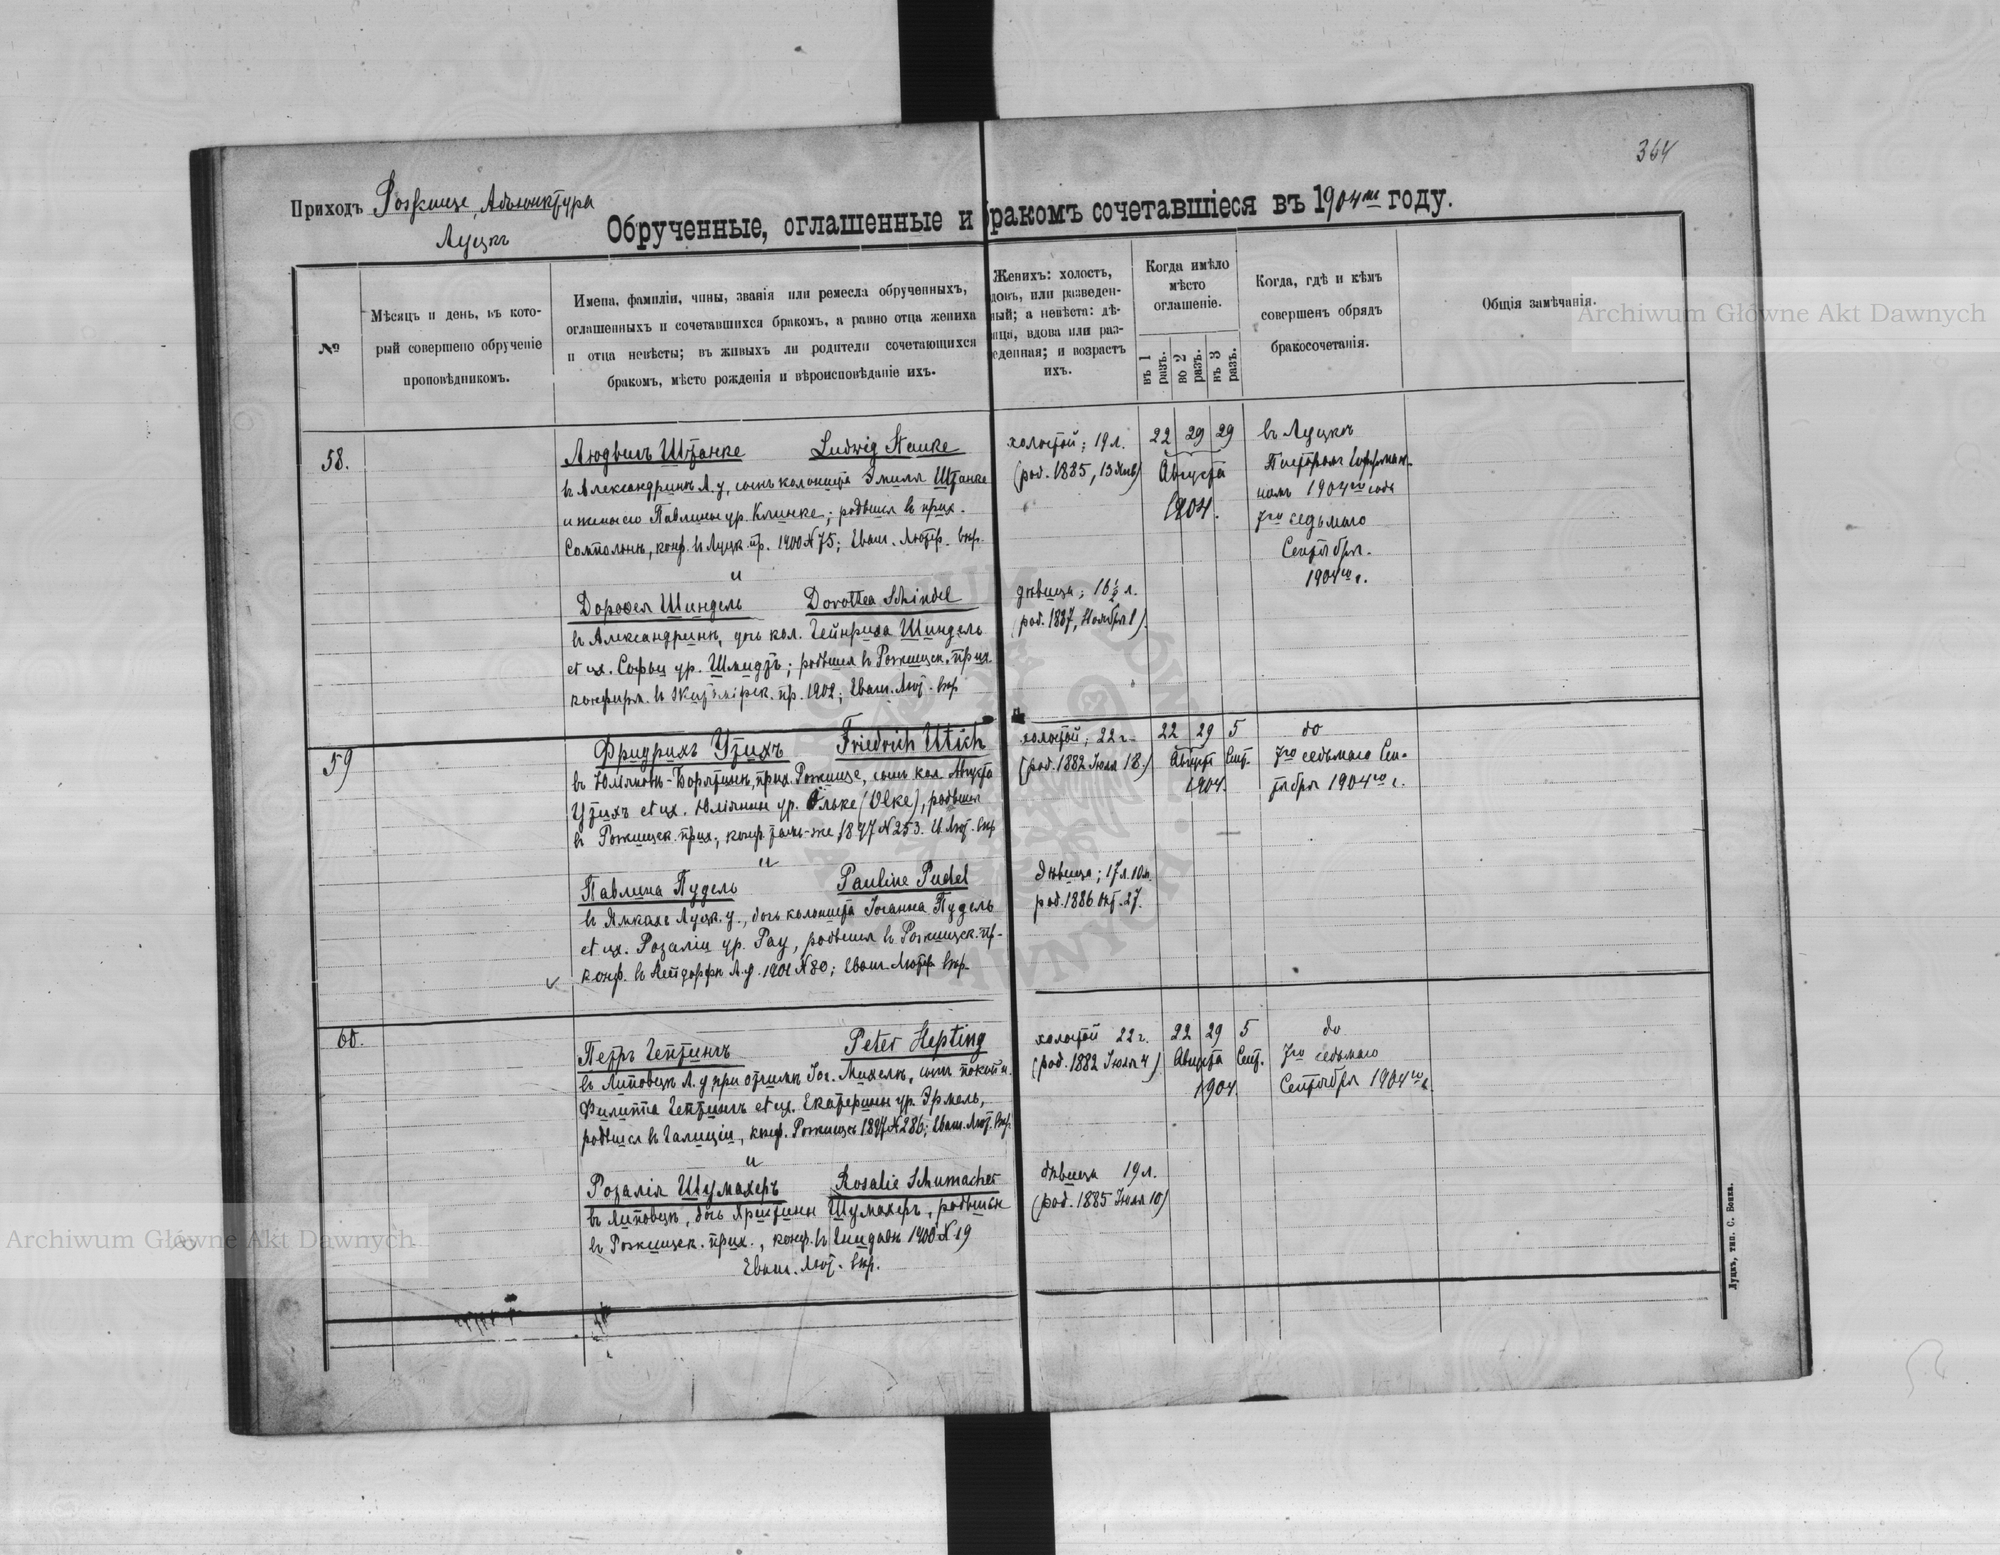 364
Приходъ Рожище, Адъюнктура
Луцкъ
Обрученные, оглашенные и бракомъ сочетавшіеся въ 1904мъ году.
№
Мѣсяцъ и день, въ кото-
рый совершено обрученіе
проповѣдникомъ.
Имена, фамиліи, чины, званія или ремесла обрученныхъ,
оглашенныхъ и сочетавшихся бракомъ, а равно отца жениха
и отца невѣсты; въ живыхъ ли родители сочетающихся
бракомъ, мѣсто рожденія и вѣроисповѣданіе ихъ.
Женихъ: холость,
довъ, или разведен-
ный; а невѣста: дѣ-
ица, вдова или раз-
еденная; и возрастъ
ихъ.
Когда имѣло
мѣсто
оглашеніе.
въ 1 разъ.
во 2 разъ.
въ 3 разъ.
Когда, гдѣ и кѣмъ
совершенъ обрядъ
бракосочетанія.
Общія замѣчанія.
58.
Людвигъ Штанке Ludwig Stanke
въ Александринѣ Л. у., сынъ колониста Эмиля Штанке
и жены его Павлины ур. Клинке; родивш. въ прих.
конф. въ Луцк. пр. 1900 N 75; Еванг. Лютер. вѣр.
и
Доровея Шиндель Dorothea Schindel
въ Александринѣ, дочь кол. Гейнриха Шиндель
et ux. Софьи ур. Шмидтъ; родвшая въ Рожищск. прих.
конфирм. въ Житомірск. пр. 1902; Еванг. Лют. вѣр
холостой; 19 л.
(род. 1885, 13 Янв)
дѣвица; 16½ л.
(род. 1887, Ноября 8)
22 29 29
Августа
1904.
въ Луцкѣ
Пасторомъ Гофман-
номъ 1904го года
7го седьмаго
Сентября.
1904го г.
59
Фридрихъ Утихъ Friedrich Utich
въ Юліяновѣ-Борятинѣ, прих. Рожище, сынъ кол. Августа
Утихъ et ux. Юліянны ур. Ольке (Olke), родвшiйся
въ Рожищск. прих., конф. тамъ-же 1897 N 253. Ев. Лют. вѣр
и
Павлина Пудель Pauline Pudel
въ Ямкахъ Луцк. у., дочь колониста Іоганна Пудель
et ux. Розаліи ур. Рау, родвшая въ Рожищск. пр-
конф. въ Нейдорфѣ Л. у. 1901 N 80; Еванг. Лютер. вѣр.
холостой; 22 г.
(род. 1882 Іюля 18.)
дѣвица; 17 л. 10 м.
род. 1886 Окт. 27.
22 29 5
Август Сент.
1904.
do
7го седьмаго Сен-
тября 1904го г.
60.
Петръ Гептингъ Peter Hepting
въ Липовецъ Л. у. при отчимѣ Іог. Михелъ, сынъ покойн.
Филиппа Гептингъ et ux. Екатерины ур. Эрмель,
родвшiйся въ Галиціи, конф. Рожище 1897 N 286; Еванг. Лют. вѣр.
и
Розалія Шумахеръ Rosalie Schumacher
въ Липовецъ, дочь Христины Шумахеръ, родвшаяся
въ Рожищск. прих., конф. въ 1900 N 19
Еванг. Лют. вѣр.
холостой 22 г.
(род. 1882 Іюля 4)
дѣвица 19 л.
(род. 1885 Іюля 10)
22 29 5
Августа Сент.
1904.
do
7го седьмаго
Сентября 1904го г.
Луцкъ, тип. С. Бонка.
Archiwum Główne Akt Dawnych
Archiwum Główne Akt Dawnych